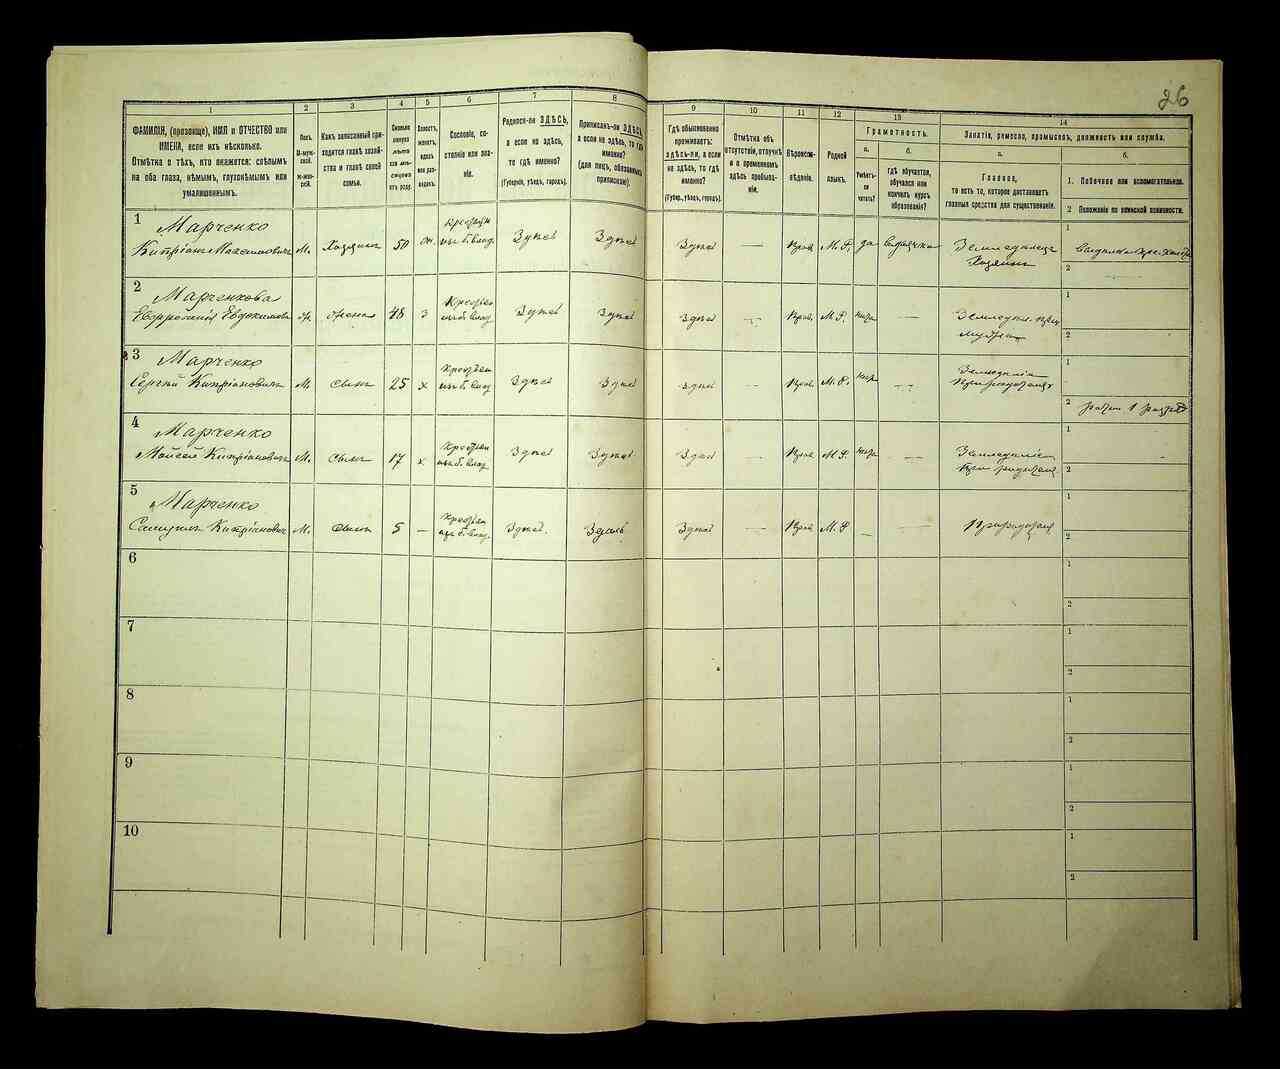 26
1
2
3
4
5
6
7
8
9
10
11
12
13
14
ФАМИЛІЯ, (прозвище), ИМЯ и ОТЧЕСТВО или
ИМЕНА, если ихъ нѣсколько.
Отмѣтка о тѣхъ, кто окажется: слѣпымъ
на оба глаза, нѣмымъ, глухонѣмымъ или
умалишеннымъ.
Полъ.
М-муж-
ской.
Ж-жен-
скій.
Какъ записанный при-
ходится главѣ хозяй-
ства и главѣ своей
семьи.
Сколько
минуло
лѣтъ
или мѣ-
сяцевъ
отъ роду.
Холостъ,
женатъ,
вдовъ
или раз-
веденъ.
Сословіе, со-
стояніе или зва-
ніе.
Родился-ли ЗДѢСЬ,
а если не здѣсь,
то гдѣ именно?
(Губернія, уѣздъ, городъ).
Приписанъ-ли ЗДѢСЬ,
а если не здѣсь, то гдѣ
именно?
(для лицъ, обязанныхъ
припискою).
Гдѣ обыкновенно
проживаетъ:
здѣсь-ли, а если
не здѣсь, то гдѣ
именно?
(Губер., уѣздъ, городъ).
Отмѣтка объ
отсутствіи, отлучкѣ
и о временномъ
здѣсь пребыва-
ніи.
Вѣроиспо-
вѣданіе.
Родной
языкъ.
Грамотность.
а.
Умѣетъ-
ли
читать?
б.
гдѣ обучается,
обучался или
кончилъ курсъ
образованія?
Занятіе, ремесло, промыселъ, должность или служба.
а.
Главное,
то есть то, которое доставляетъ
главныя средства для существованія.
б.
1. Побочное или вспомогательное.
2 Положеніе по воинской повинности.
1
Марченко
Кипріанъ Максимовичъ М. Хозяинъ 50 Крестьян изъ б. влад. Здѣсь Здѣсь Здѣсь — Прав. М. Р. да Земледѣлецъ
Хозяинъ
1
2
2
Марченкова
Евфросинія Евдокимова ж. жена 48 з Крестьян изъ б. влад. Здѣсь Здѣсь Здѣсь — Прав. М. Р. —
1
2
3
Марченко
Сергѣй Кипріановичъ М. сынъ 25 х Крестьян изъ б. влад. Здѣсь Здѣсь Здѣсь — Прав. М. Р. — Земледѣліе
При родителяхъ
1
2 ратн 1 разряд
4
Марченко
Мойсей Кипріановичъ М. сынъ 17 х Крестьян изъ б. влад. Здѣсь Здѣсь Здѣсь — Прав. М. Р. — Земледѣліе
При родителях
1
2
5
Марченко
Самуилъ Кипріановичъ М. сынъ 5 — Крестьян изъ б. влад. Здѣсь Здѣсь Здѣсь — Прав. М. Р — — При родителях
1
2
6
1
2
7
1
2
8
1
2
9
1
2
10
1
2